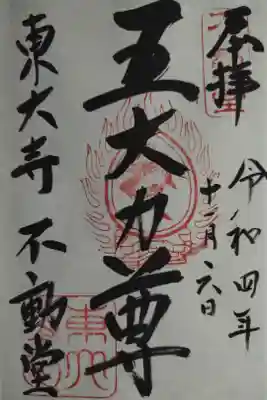 奉拝
令和四年
十一月六日
五大力尊
東大寺 不動堂